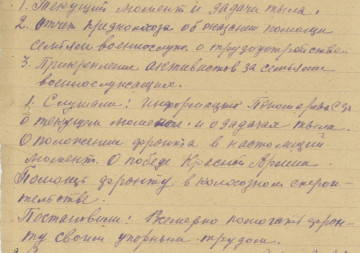 1. Текущий момент и задачи тыла.
2. Отчет предколхоза об оказании помощи
семьям военнослуж. о трудоустройстве.
3. Прикрепление активистов за семьями
военнослужащих.
1. Слушали: Информацию
о текущем моменте и о задачах тыла.
О положении фронта в настоящий
момент. О победе Красной Армии.
Помощь фронту в колхозном строи-
тельстве.
Постановили: Всемерно помогать фрон-
ту своим упорным трудом.